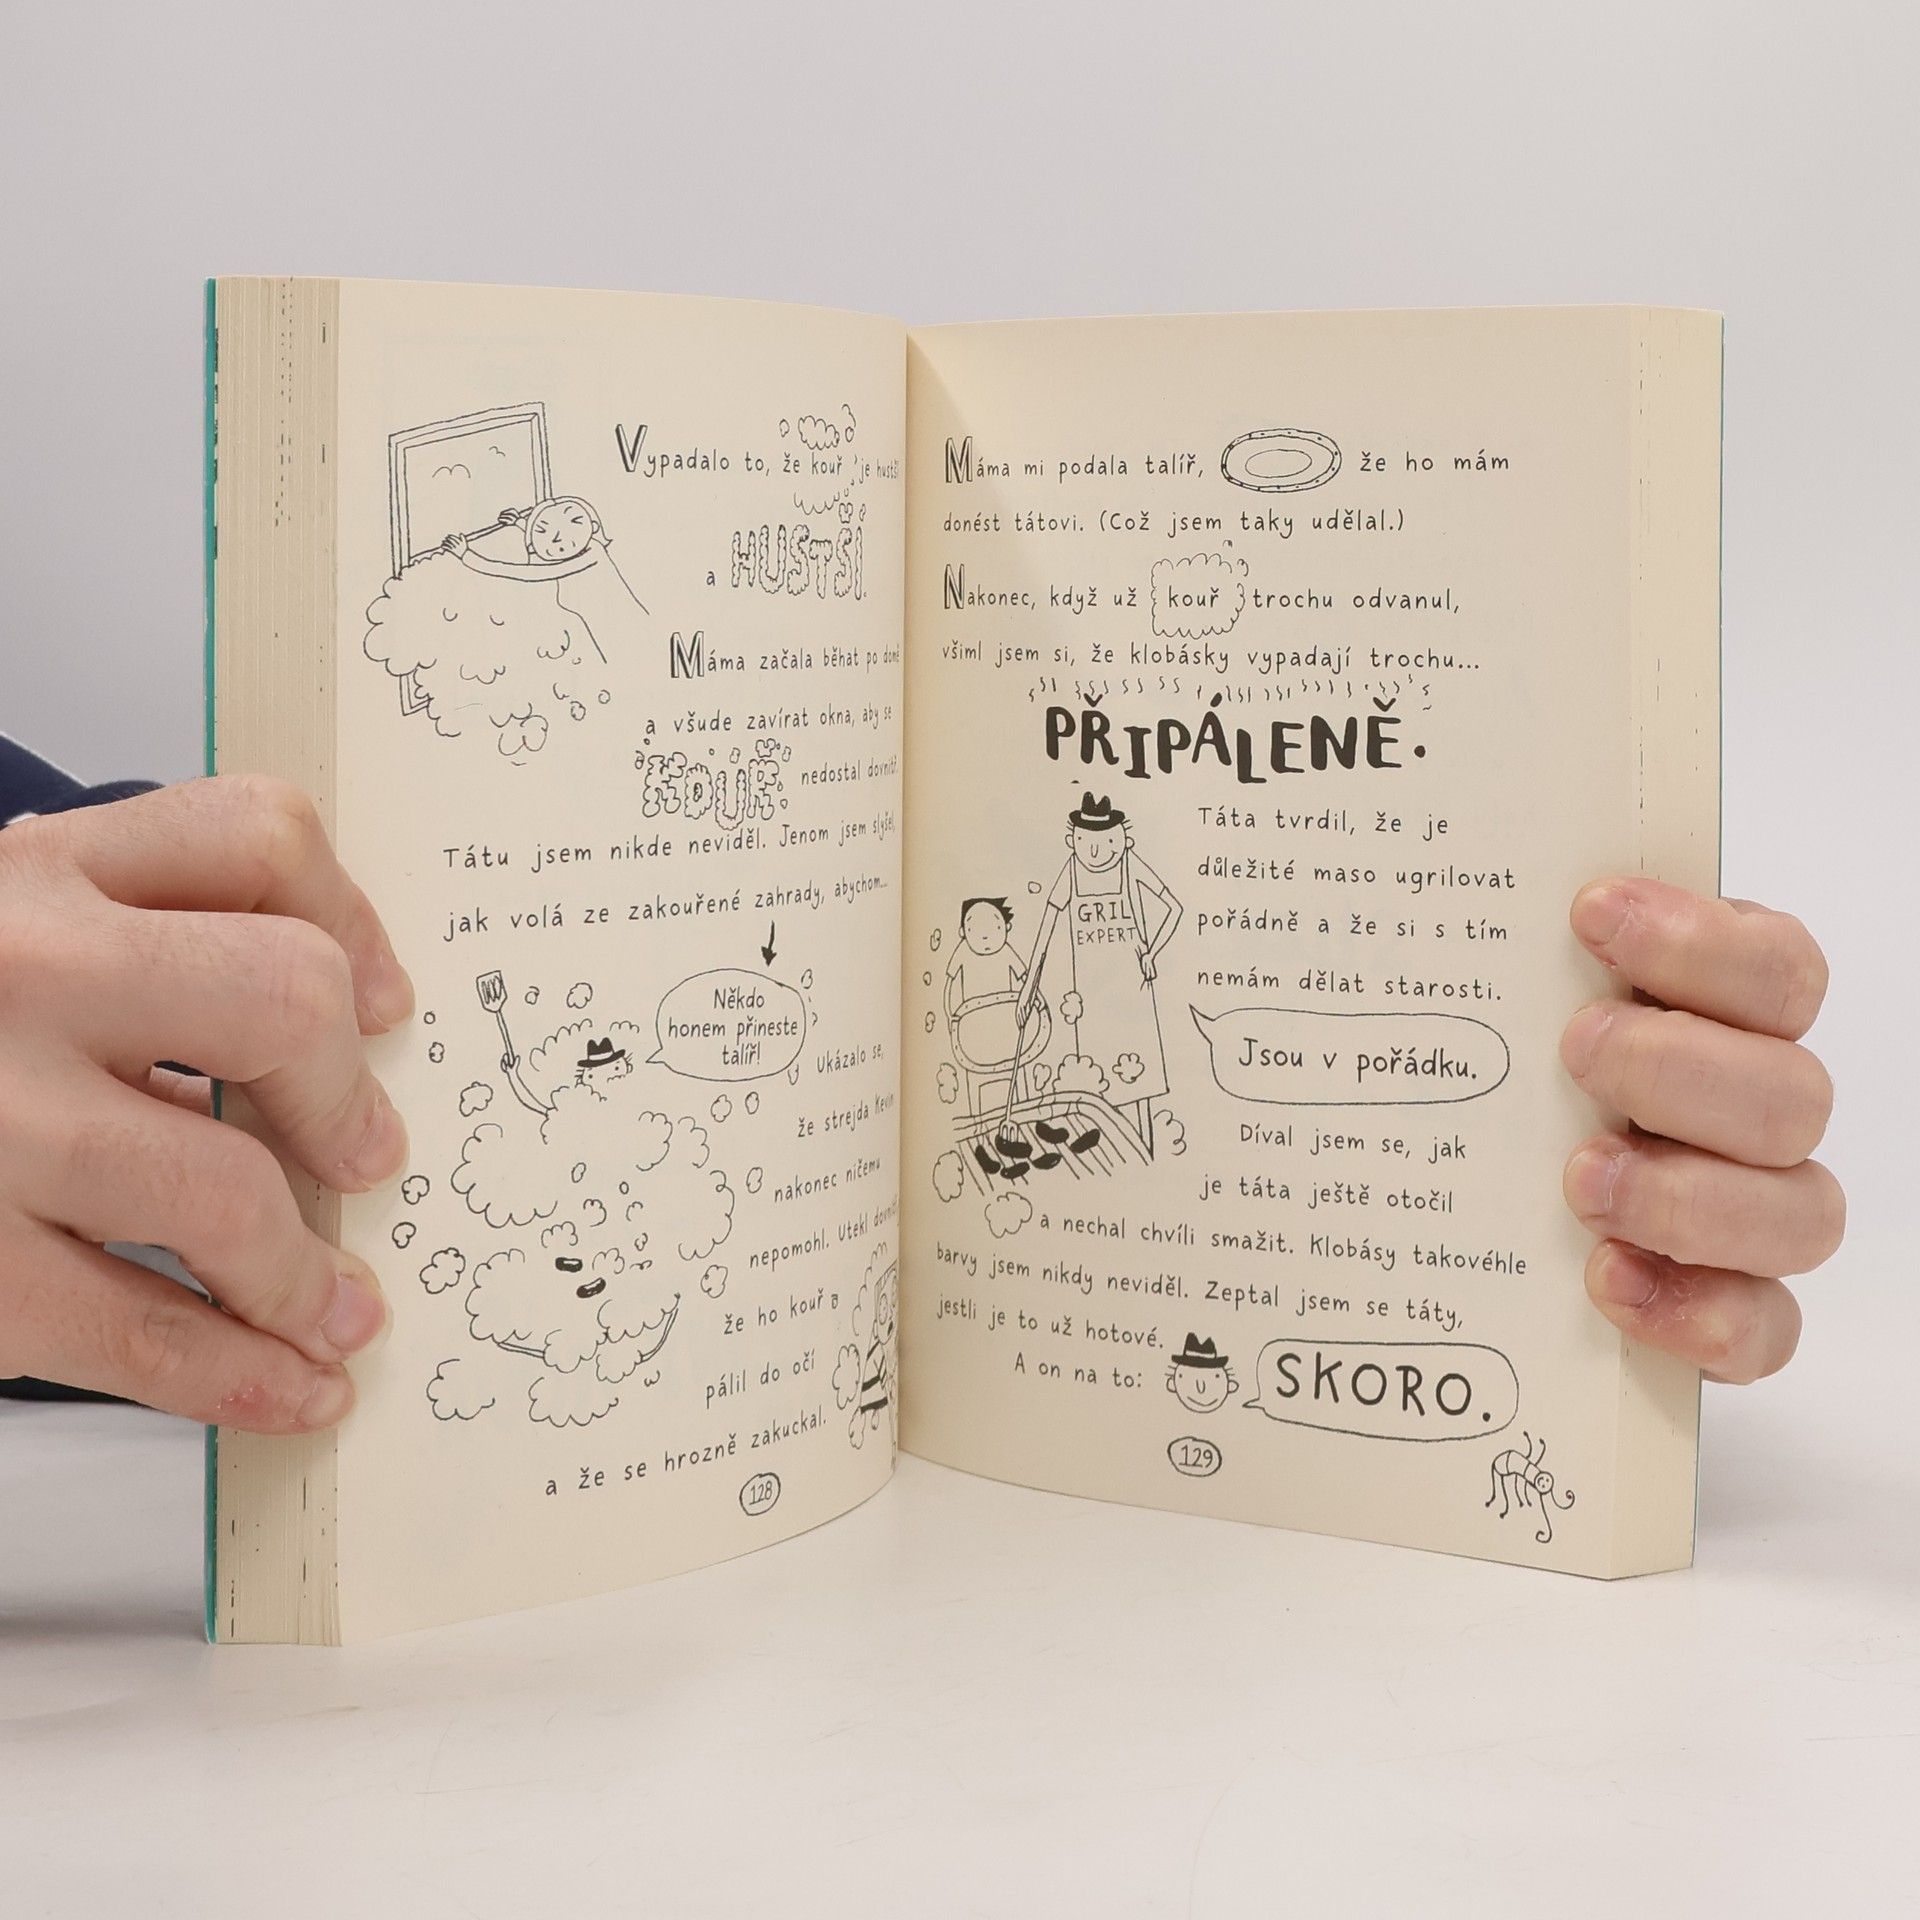 Vypadalo to, že kouř je hustší
a HUSTŠÍ.
Máma začala běhat po domě
a všude zavírat okna, aby se
KOUŘ nedostal dovnitř.
Tátu jsem nikde neviděl. Jenom jsem slyšel,
jak volá ze zakouřené zahrady, abychom...
Někdo
honem přineste
talíř!
Ukázalo se,
že strejda Kevin
nakonec ničemu
nepomohl. Utekl dovnitř,
že ho kouř
pálil do očí
a že se hrozně zakuckal.
128
Máma mi podala talíř, že ho mám
donést tátovi. (Což jsem taky udělal.)
Nakonec, když už kouř trochu odvanul,
všiml jsem si, že klobásky vypadají trochu...
PŘIPÁLENĚ.
GRIL
EXPERT
Táta tvrdil, že je
důležité maso ugrilovat
pořádně a že si s tím
nemám dělat starosti.
Jsou v pořádku.
Díval jsem se, jak
je táta ještě otočil
a nechal chvíli smažit. Klobásy takovéhle
barvy jsem nikdy neviděl. Zeptal jsem se táty,
jestli je to už hotové.
A on na to:
SKORO.
129